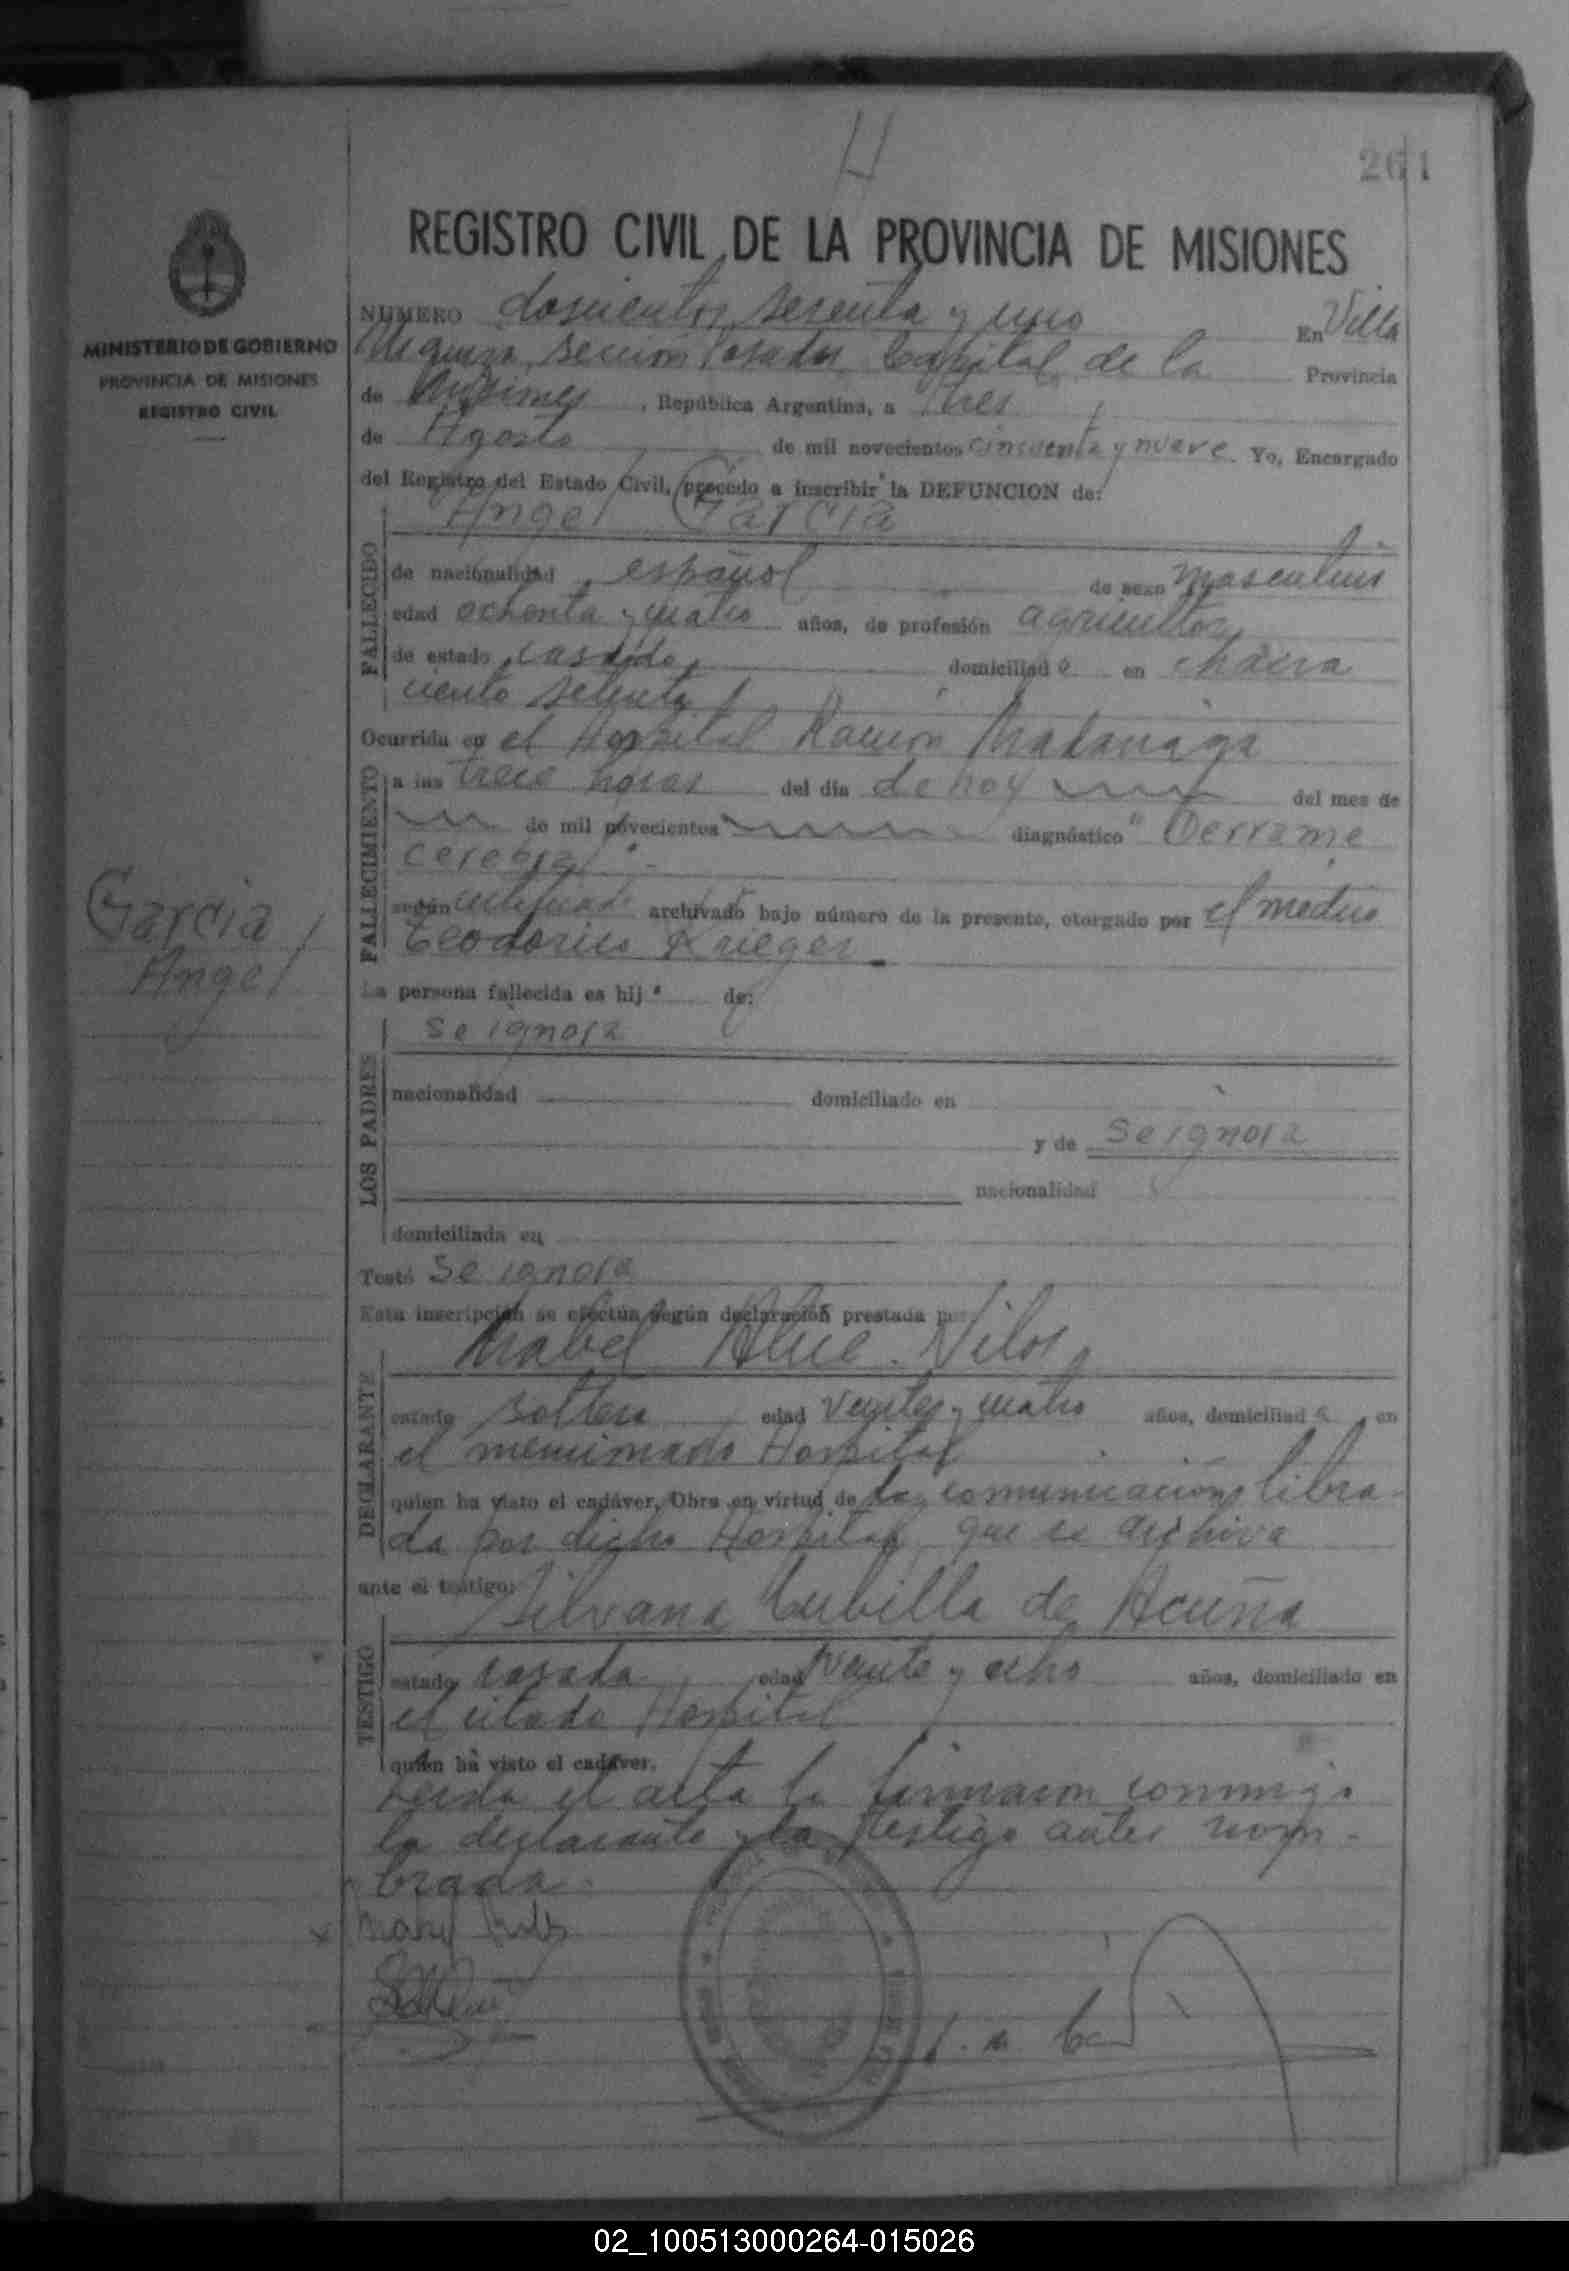 261
REGISTRO CIVIL DE LA PROVINCIA DE MISIONES
MINISTERIO DE GOBIERNO
PROVINCIA DE MISIONES
REGISTRO CIVIL
NUMERO doscientos sesenta y uno En Villa
Urquiza, sección Posadas Capital de la Provincia
de Misiones, República Argentina, a tres
de Agosto de mil novecientos cincuenta y nueve Yo, Encargado
del Registro del Estado Civil, procedo a inscribir la DEFUNCION de:
Angel García
FALLECIDO
de nacionalidad español de sexo masculino
edad ochenta y cuatro años, de profesión agricultor
de estado casado domiciliado en chacra
ciento setenta
Ocurrida en el Hospital Ramón Madariaga
FALLECIMIENTO
a las trece horas del día de hoy del mes de
de mil novecientos diagnóstico "Derrame
cerebral".-
García
Angel
según certificado archivado bajo número de la presente, otorgado por el medico
Teodorico Krieger.
La persona fallecida es hijo de:
LOS PADRES
Se ignora
nacionalidad domiciliado en
y de Se ignora
nacionalidad
domiciliada en
Testó Se ignora
Esta inscripción se efectúa según declaración prestada por
Mabel Alice
DECLARANTE
estado soltera edad veinte y cuatro años, domiciliada en
el mencionado Hospital
quien ha visto el cadáver, Obra en virtud de la comunicación libra-
da por dicho Hospital que se archiva
ante el testigo:
Silvana Cubilla de Acuña
TESTIGO
estado casada edad veinte y ocho años, domiciliado en
el citado Hospital
quien ha visto el cadáver.
Leida el acta la firmaron conmigo
la declarante y la testigo antes nom-
brada.
02_100513000264-015026